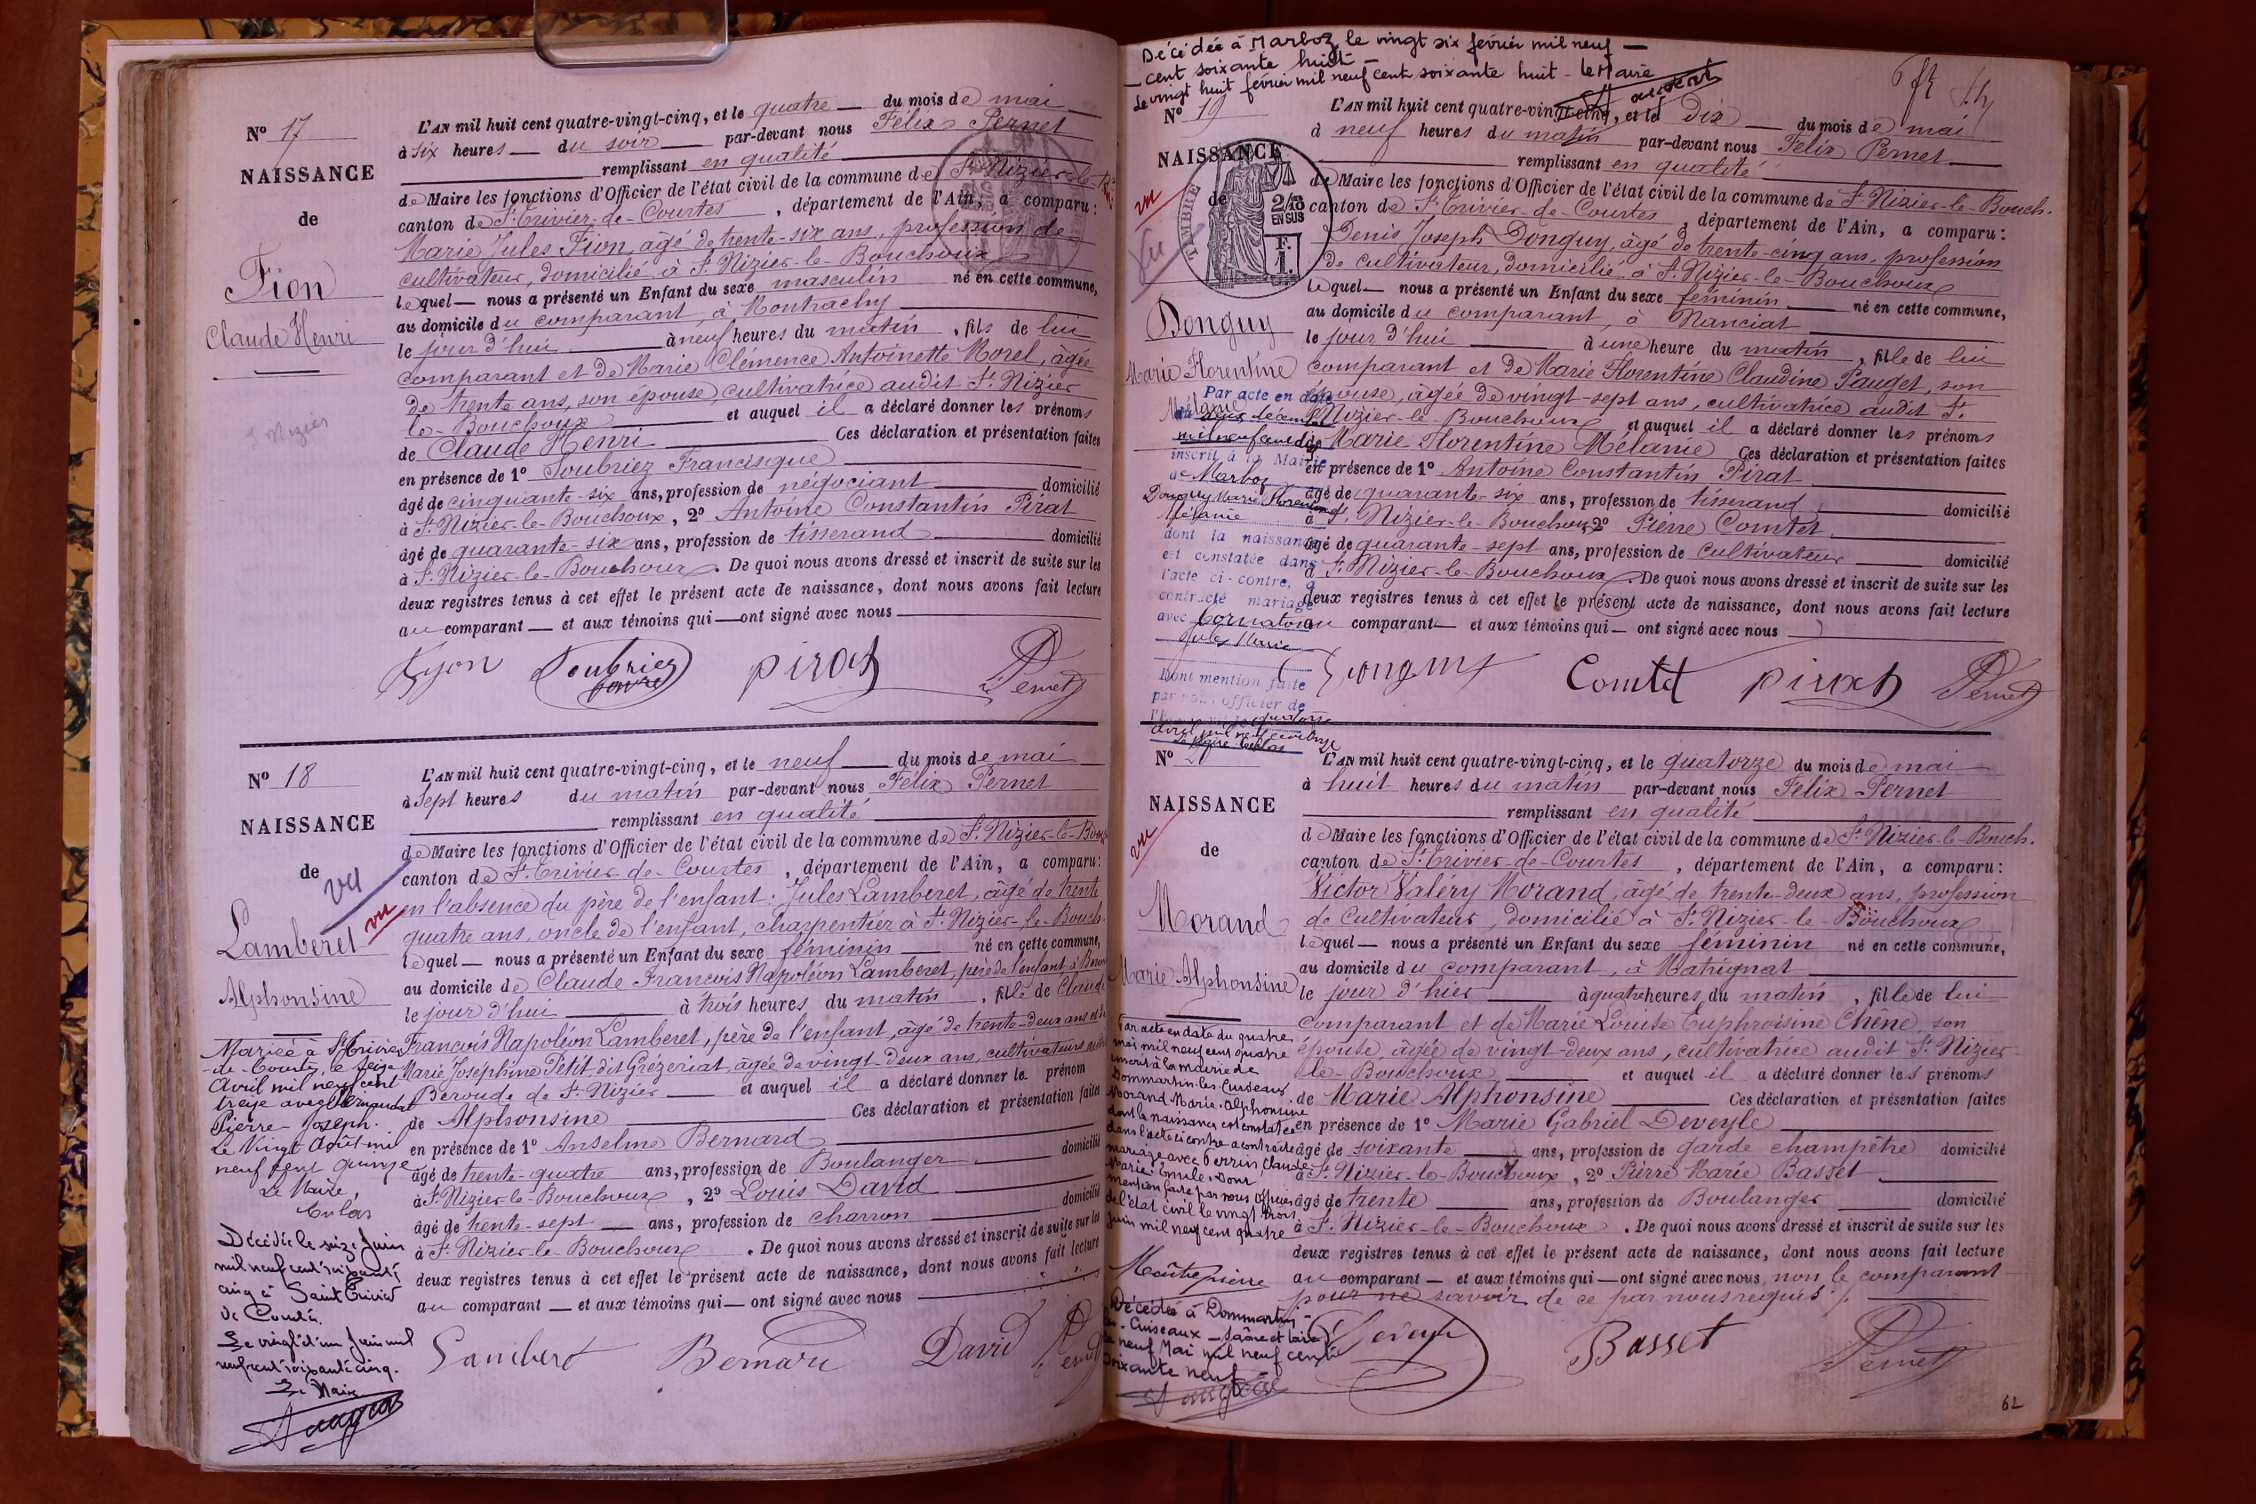 N° 17
NAISSANCE
de
Fion
Claude Henri
St Nizier
L'AN mil huit cent quatre-vingt-cinq, et le quatre du mois de mai
à six heures du soir par-devant nous Félix Pernet
remplissant en qualité
de Maire les fonctions d'Officier de l'état civil de la commune de St Nizier-le-
canton de St Trivier-de-Courtes, département de l'Ain, a comparu :
Marie Jules Fion, âgé de trente-six ans, profession de
cultivateur, domicilié à St Nizier-le-Bouchoux
lequel nous a présenté un Enfant du sexe masculin né en cette commune,
au domicile du comparant, à Montrachy
le jour d'hui à neuf heures du matin, fils de lui
comparant et de Marie Clémence Antoinette Morel, âgée
de trente ans, son épouse, cultivatrice audit St Nizier
le-Bouchoux et auquel il a déclaré donner les prénoms
de Claude Henri Ces déclaration et présentation faites
en présence de 1° Soubriez Francisque
âgé de cinquante-six ans, profession de négociant domicilié
à St Nizier-le-Bouchoux, 2° Antoine Constantin Pirat
âgé de quarante-six ans, profession de tisserand domicilié
à St Nizier-le-Bouchoux. De quoi nous avons dressé et inscrit de suite sur les
deux registres tenus à cet effet le présent acte de naissance, dont nous avons fait lecture
au comparant et aux témoins qui ont signé avec nous
Fyon Soubriez Pirat Pernet
N° 18
NAISSANCE
de
vu
vu
Lamberet
Alphonsine
Mariée à St Trivier
-de-Courtes, le seize
Avril mil neuf cent
treize avec
Pierre Joseph.
Le Vingt Août mil
neuf cent quinze
Le Maire,
Décédée le seize Juin
mil neuf cent soixante
cinq à Saint Trivier
de Courtes.
Le vingt et un Juin mil
neuf cent soixante cinq.
Le Maire
L'AN mil huit cent quatre-vingt-cinq, et le neuf du mois de mai
à sept heures du matin par-devant nous Félix Pernet
remplissant en qualité
de Maire les fonctions d'Officier de l'état civil de la commune de St Nizier-le-Bouch
canton de St Trivier-de-Courtes, département de l'Ain, a comparu :
en l'absence du père de l'enfant : Jules Lamberet, âgé de trente
quatre ans, oncle de l'enfant, charpentier à St Nizier-le-Bouch.
lequel nous a présenté un Enfant du sexe féminin né en cette commune,
au domicile de Claude François Napoléon Lamberet, père de l'enfant à
le jour d'hui à trois heures du matin, fille de Claude
François Napoléon Lamberet, père de l'enfant, âgé de trente-deux ans et de
Marie Joséphine Petit dit Grézeriat, âgée de vingt-deux ans, cultivateurs
Beroude de St Nizier et auquel il a déclaré donner le prénom
de Alphonsine Ces déclaration et présentation faites
en présence de 1° Anselme Bernard
âgé de trente-quatre ans, profession de Boulanger domicilié
à St Nizier-le-Bouchoux, 2° Louis David
âgé de trente-sept ans, profession de charron domicilié
à St Nizier-le-Bouchoux. De quoi nous avons dressé et inscrit de suite sur les
deux registres tenus à cet effet le présent acte de naissance, dont nous avons fait lecture
au comparant et aux témoins qui ont signé avec nous
Lamberet Bernard David Pernet
Décédée à Marboz le vingt six février mil neuf
cent soixante huit
Le vingt huit février mil neuf cent soixante huit - le Maire
N° 19
NAISSANCE
de
vu
vu
TIMBRE
2/10
EN SUS
1 F.
Donguy
Marie Florentine
Mélanie
Par acte en date
du
mil neuf cent dix
inscrit à la Mairie
de Marboz
Donguy Marie Florentine
Mélanie
dont la naissance
est constatée dans
l'acte ci-contre, a
contracté mariage
avec
Jules Marie
Dont mention faite
par nous officier de
avril mil neuf cent onze
L'AN mil huit cent quatre-vingt-cinq, et le dix du mois de mai
à neuf heures du matin par-devant nous Félix Pernet
remplissant en qualité
de Maire les fonctions d'Officier de l'état civil de la commune de St Nizier-le-Bouch.
canton de St Trivier-de-Courtes, département de l'Ain, a comparu :
Denis Joseph Donguy, âgé de trente-cinq ans, profession
de cultivateur, domicilié à St Nizier-le-Bouchoux
lequel nous a présenté un Enfant du sexe féminin né en cette commune,
au domicile du comparant, à Nanciat
le jour d'hui à une heure du matin, fille de lui
comparant et de Marie Florentine Claudine Pauget, son
épouse, âgée de vingt-sept ans, cultivatrice audit St
Nizier-le-Bouchoux et auquel il a déclaré donner les prénoms
de Marie Florentine Mélanie Ces déclaration et présentation faites
en présence de 1° Antoine Constantin Pirat
âgé de quarante-six ans, profession de tisserand domicilié
à St Nizier-le-Bouchoux, 2° Pierre Comtet
âgé de quarante-sept ans, profession de cultivateur domicilié
à St Nizier-le-Bouchoux. De quoi nous avons dressé et inscrit de suite sur les
deux registres tenus à cet effet le présent acte de naissance, dont nous avons fait lecture
au comparant et aux témoins qui ont signé avec nous
Donguy Comtet Pirat Pernet
N°
NAISSANCE
de
vu
Morand
Marie Alphonsine
Par acte en date du quatre
mai mil neuf cent quatre
inscrit à la mairie de
Dommartin les Cuiseaux
Morand Marie Alphonsine
dont la naissance est constatée
dans l'acte ci contre a contracté
mariage avec Perrin Claude
Marie Émile. Dont
mention faite par nous officier
de l'état civil le vingt trois
juin mil neuf cent quatre
Décédée à Dommartin-
les-Cuiseaux - Saône et Loire
le neuf Mai mil neuf cent
soixante neuf
L'AN mil huit cent quatre-vingt-cinq, et le quatorze du mois de mai
à huit heures du matin par-devant nous Félix Pernet
remplissant en qualité
de Maire les fonctions d'Officier de l'état civil de la commune de St Nizier-le-Bouch.
canton de St Trivier-de-Courtes, département de l'Ain, a comparu :
Victor Valéry Morand, âgé de trente-deux ans, profession
de cultivateur, domicilié à St Nizier-le-Bouchoux
lequel nous a présenté un Enfant du sexe féminin né en cette commune,
au domicile du comparant, à Matrignat
le jour d'hier à quatre heures du matin, fille de lui
comparant et de Marie Louise Euphroisine Chêne, son
épouse, âgée de vingt-deux ans, cultivatrice audit St Nizier
le-Bouchoux et auquel il a déclaré donner les prénoms
de Marie Alphonsine Ces déclaration et présentation faites
en présence de 1° Marie Gabriel Deveyle
âgé de soixante ans, profession de garde champêtre domicilié
à St Nizier-le-Bouchoux, 2° Pierre Marie Basset
âgé de trente ans, profession de Boulanger domicilié
à St Nizier-le-Bouchoux. De quoi nous avons dressé et inscrit de suite sur les
deux registres tenus à cet effet le présent acte de naissance, dont nous avons fait lecture
au comparant et aux témoins qui ont signé avec nous, non le comparant
pour ne savoir de ce par nous requis ./.
Deveyle Basset Pernet
62